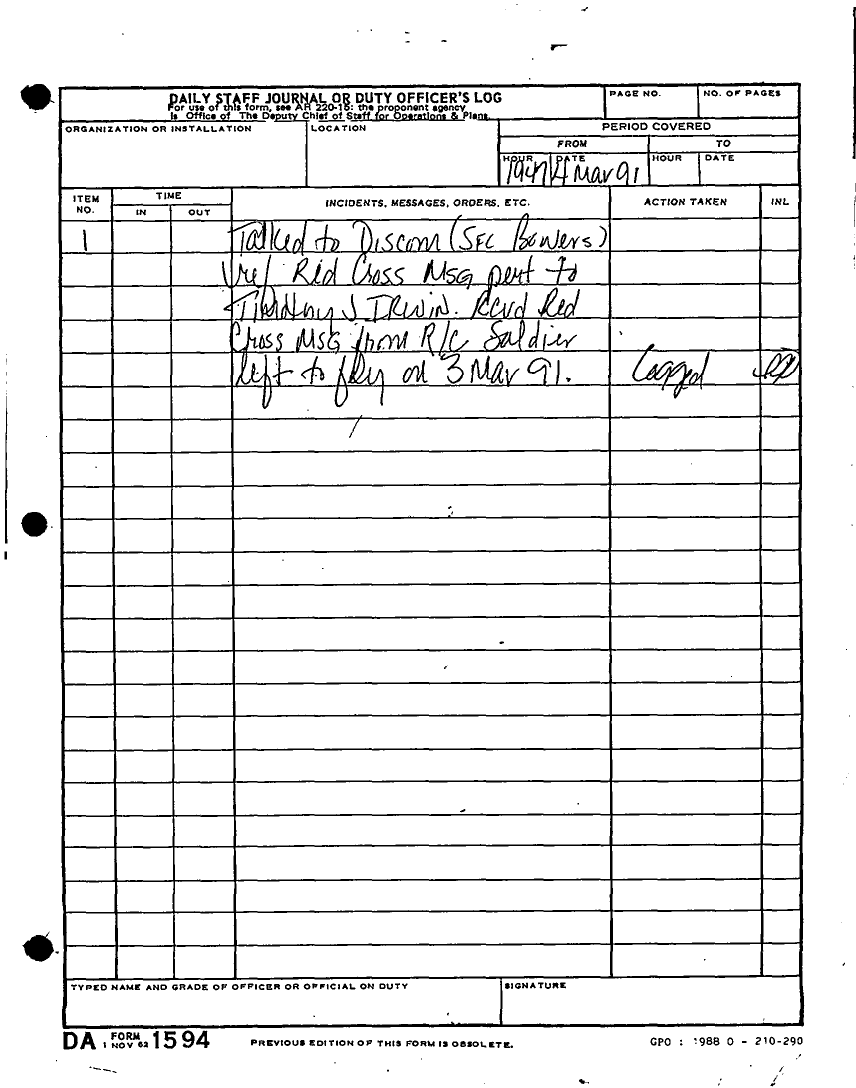 DAILY STAFF JOURNAL OR DUTY OFFICER'S LOG
For use of this form, see AR 220-15; the proponent agency
is Office of The Deputy Chief of Staff for Operations & Plans.
PAGE NO.
NO. OF PAGES
ORGANIZATION OR INSTALLATION
LOCATION
PERIOD COVERED
FROM
TO
HOUR
DATE
HOUR
DATE
1947
4 Mar 91
ITEM NO.
TIME
IN
OUT
INCIDENTS, MESSAGES, ORDERS, ETC.
ACTION TAKEN
INL
1
Talked to Discom (SFC Bowers)
re/ Red Cross Msg pert to
Timothy J IRWIN. Rcvd Red
Cross MSG from R/C Soldier
left to fly on 3 Mar 91.
Logged
TYPED NAME AND GRADE OF OFFICER OR OFFICIAL ON DUTY
SIGNATURE
DA FORM 1 NOV 62 1594
PREVIOUS EDITION OF THIS FORM IS OBSOLETE.
GPO : 1988 O - 210-290